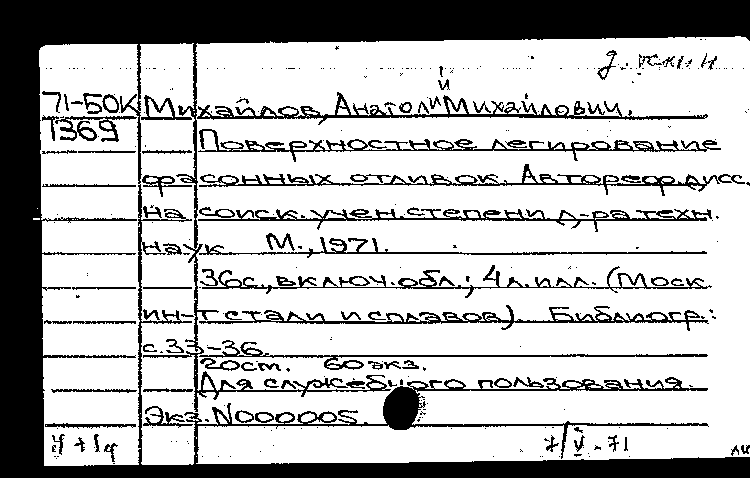 71-БОК Михайлов, Анатолий Михайлович.
1369 Поверхностное легирование
фасонных отливок. Автореф. дисс.
на соиск. учен. степени д-ра техн.
наук М., 1971.
36с., включ. обл.; 4 л. илл. (Моск.
ин-т стали и сплавов). Библиогр.:
с. 33-36.
20ст. 60 экз.
Для служебного пользования.
Экз. N000005.
7/V-71